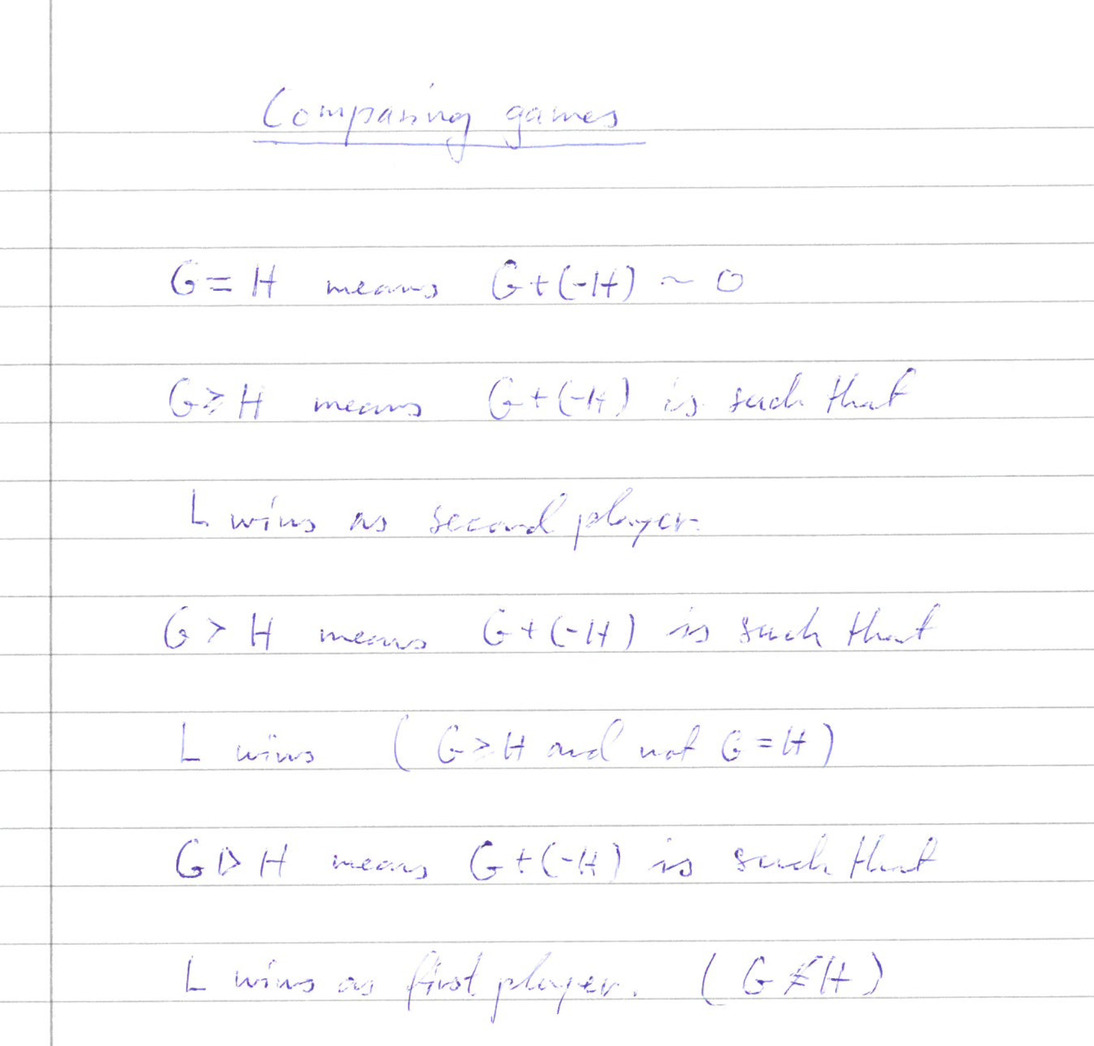 Comparing games
G = H means G + (-H) ~ 0
G ≥ H means G + (-H) is such that
L wins as second player.
G > H means G + (-H) is such that
L wins ( G ≥ H and not G = H )
G ⊳ H means G + (-H) is such that
L wins as first player. ( G ≰ H )